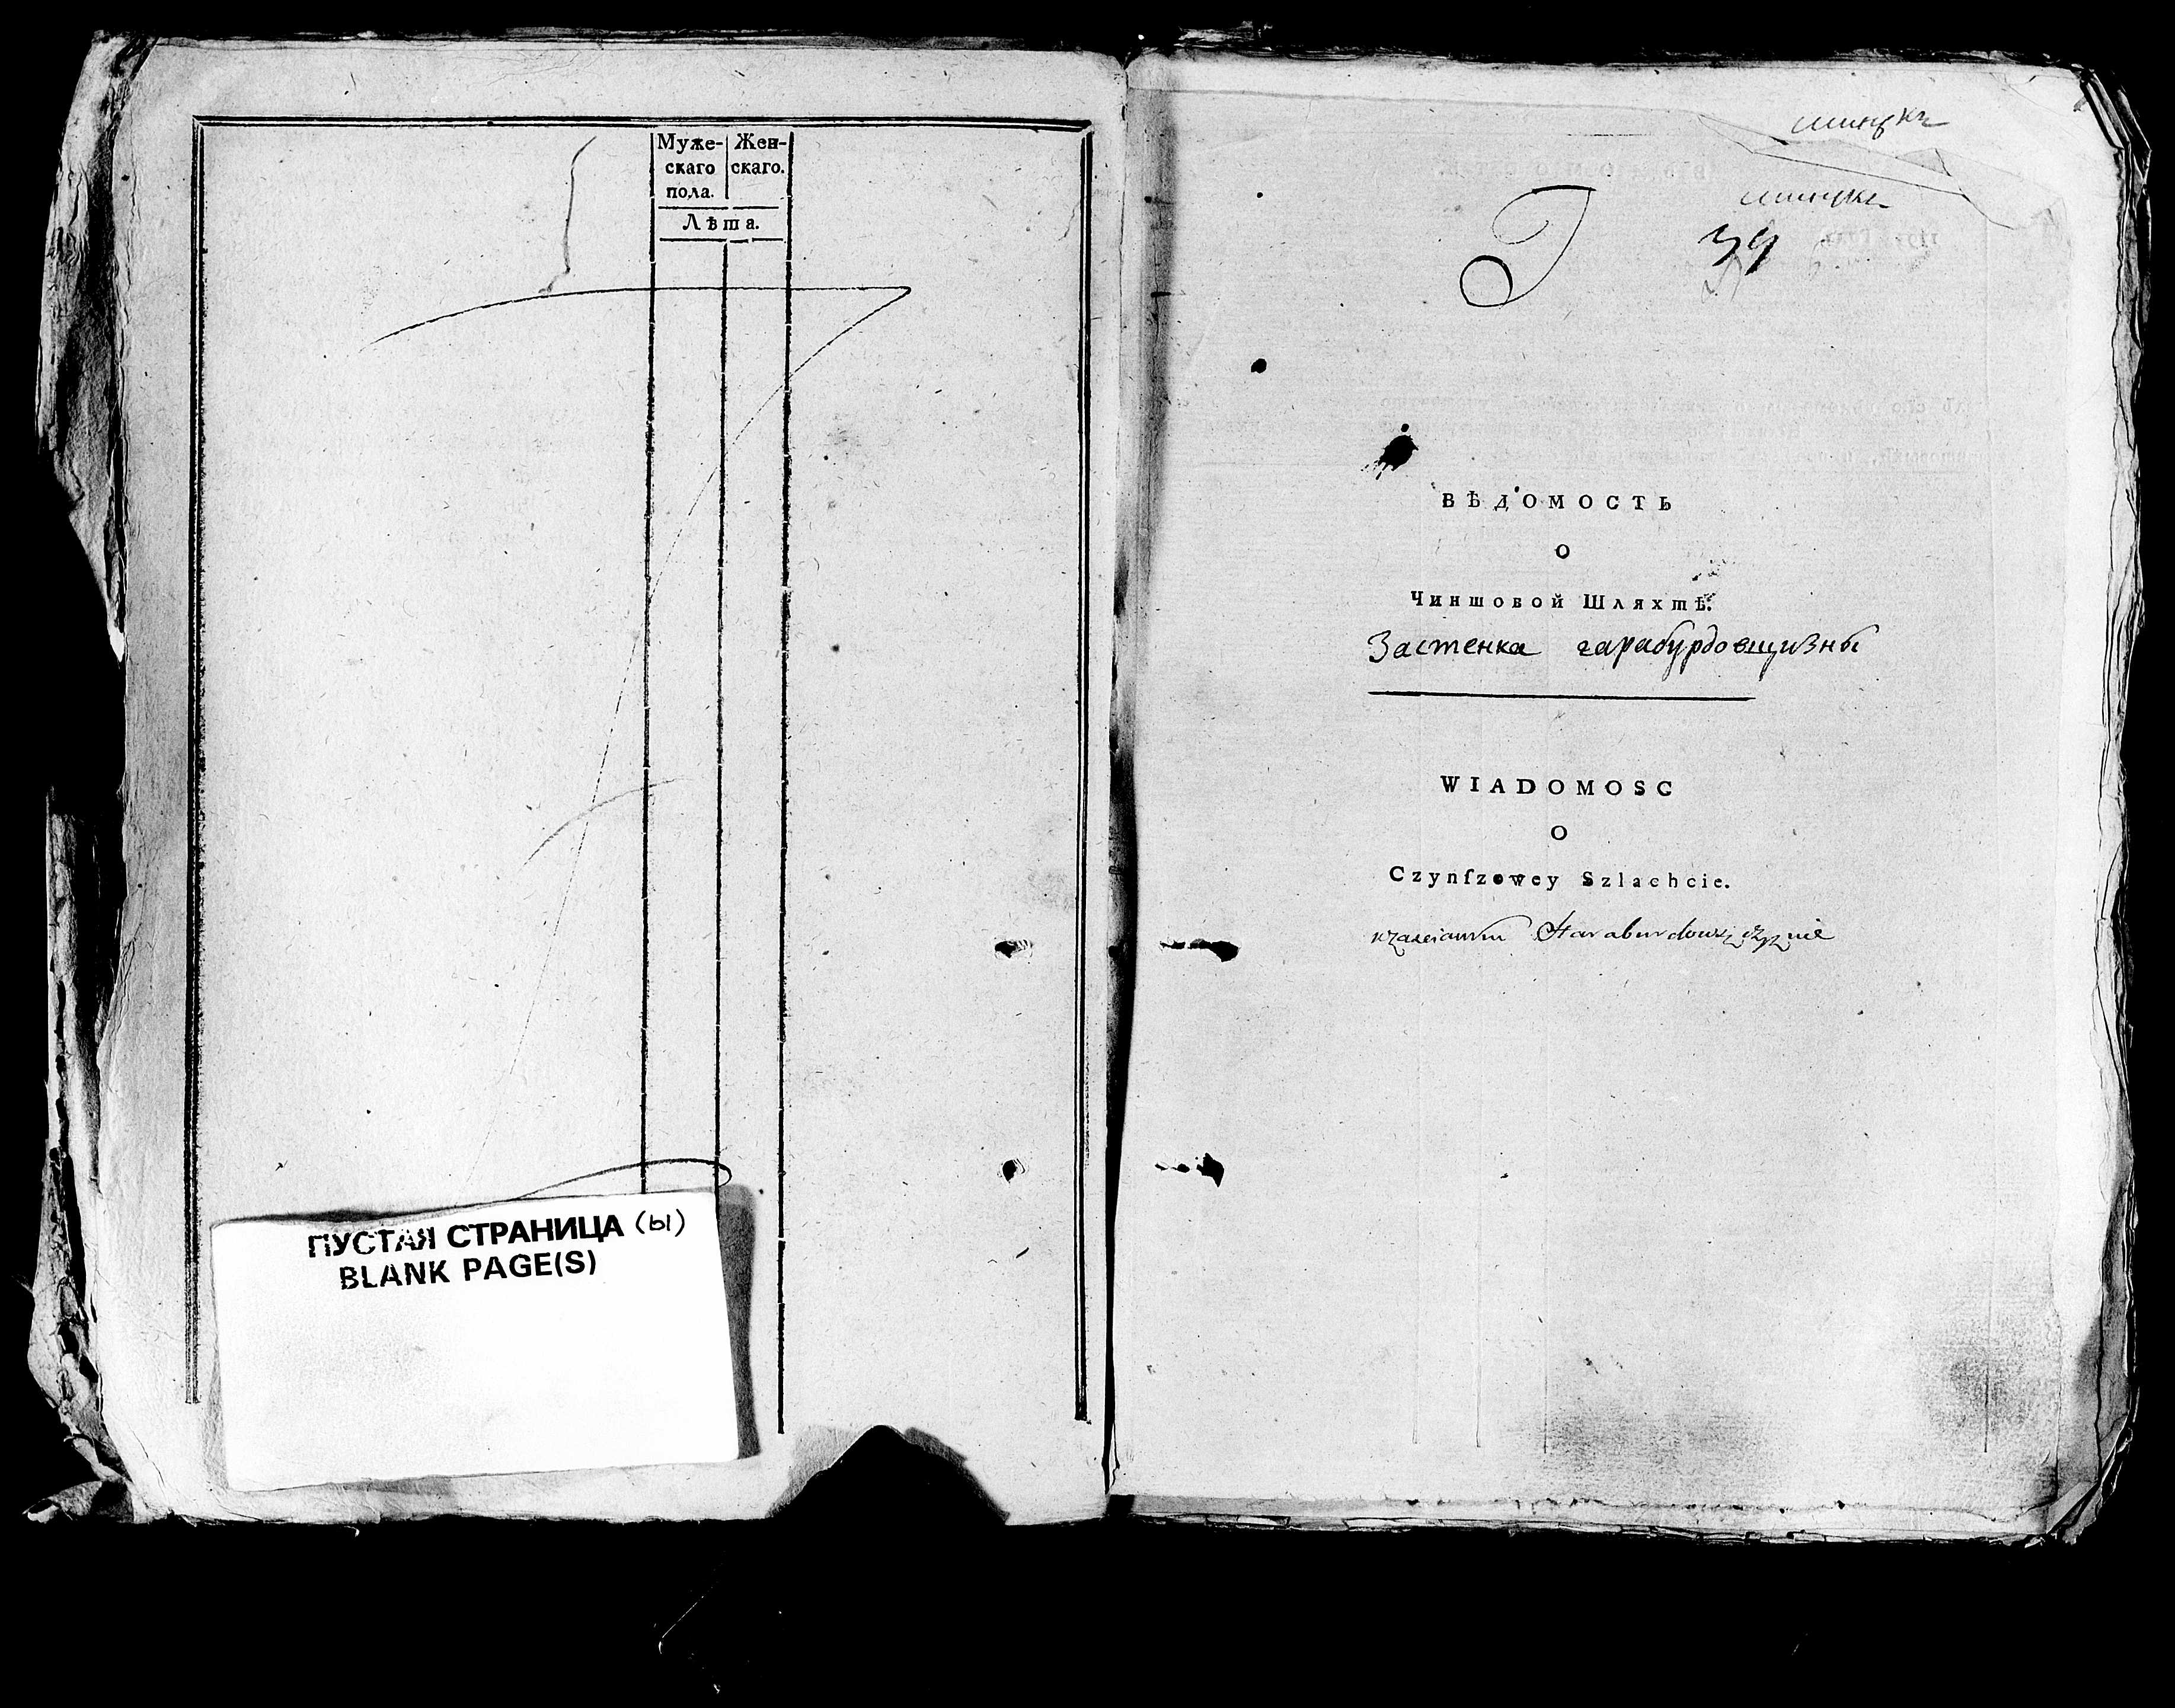 Муже-
скаго
пола.
Жен-
скаго.
Лѣта.
ПУСТАЯ СТРАНИЦА (Ы)
BLANK PAGE(S)
минскъ
39
ВѢДОМОСТЬ
О
Чиншовой Шляхтѣ.
Застенка гарабурдовщизны
WIADOMOSC
O
Czynſzowey Szlachcie.
Haraburdowszczyznie